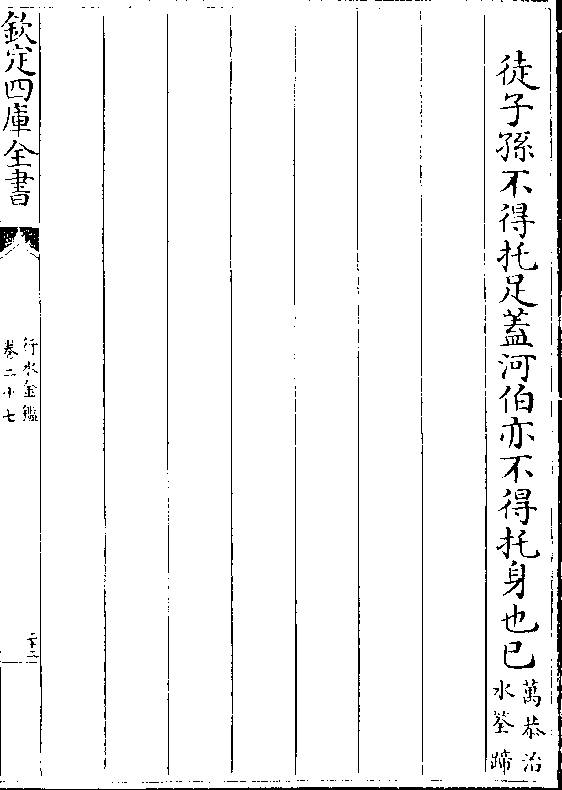 徒子孫不得托足蓋河伯亦不得托身也已
萬恭治
水筌蹄
欽定四庫全書
行水金鑑
卷二十七
二十二